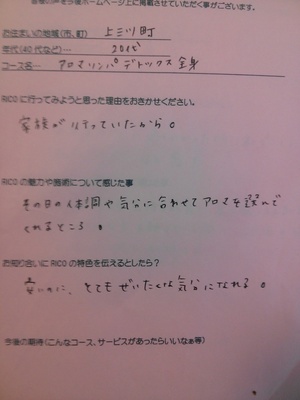 皆様の声を今後ホームページ上に掲載させていただく事がございます。
お住まいの地域(市、町) 上三川町
年代(40代など)… 20代
コース名… アロマリンパデトックス全身
RICOに行ってみようと思った理由をおきかせください。
家族が行っていたから。
RICOの魅力や施術について感じた事
その日の体調や気分に合わせてアロマを選んで
くれるところ。
お知り合いにRICOの特色を伝えるとしたら?
安いのに、とてもぜいたくな気分になれる。
今後の期待(こんなコース、サービスがあったらいいなぁ等)